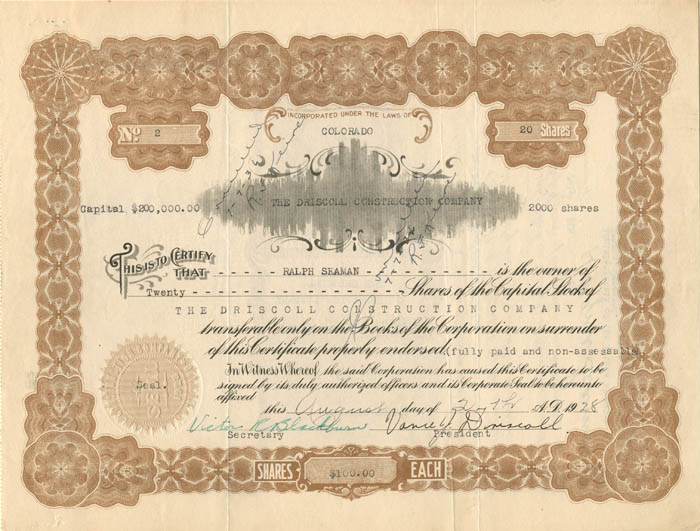 INCORPORATED UNDER THE LAWS OF
COLORADO
No 2
20 Shares
Capital $200,000.00
THE DRISCOLL CONSTRUCTION COMPANY
2000 shares
THIS IS TO CERTIFY THAT - - - - - - - RALPH SEAMAN - - - - - - - - - - - is the owner of
Twenty - - - - - - - - - - - - - - - - - - - - - - Shares of the Capital Stock of
THE DRISCOLL CONSTRUCTION COMPANY
transferable only on the Books of the Corporation on surrender
of this Certificate properly endorsed. (fully paid and non-assessable)
In Witness Whereof, the said Corporation has caused this Certificate to be
signed by its duly authorized officers and its Corporate Seal to be hereunto
affixed
Seal.
this August day of A.D. 1928
Victor R Blackburn
Driscoll
Secretary
President
SHARES $100.00 EACH